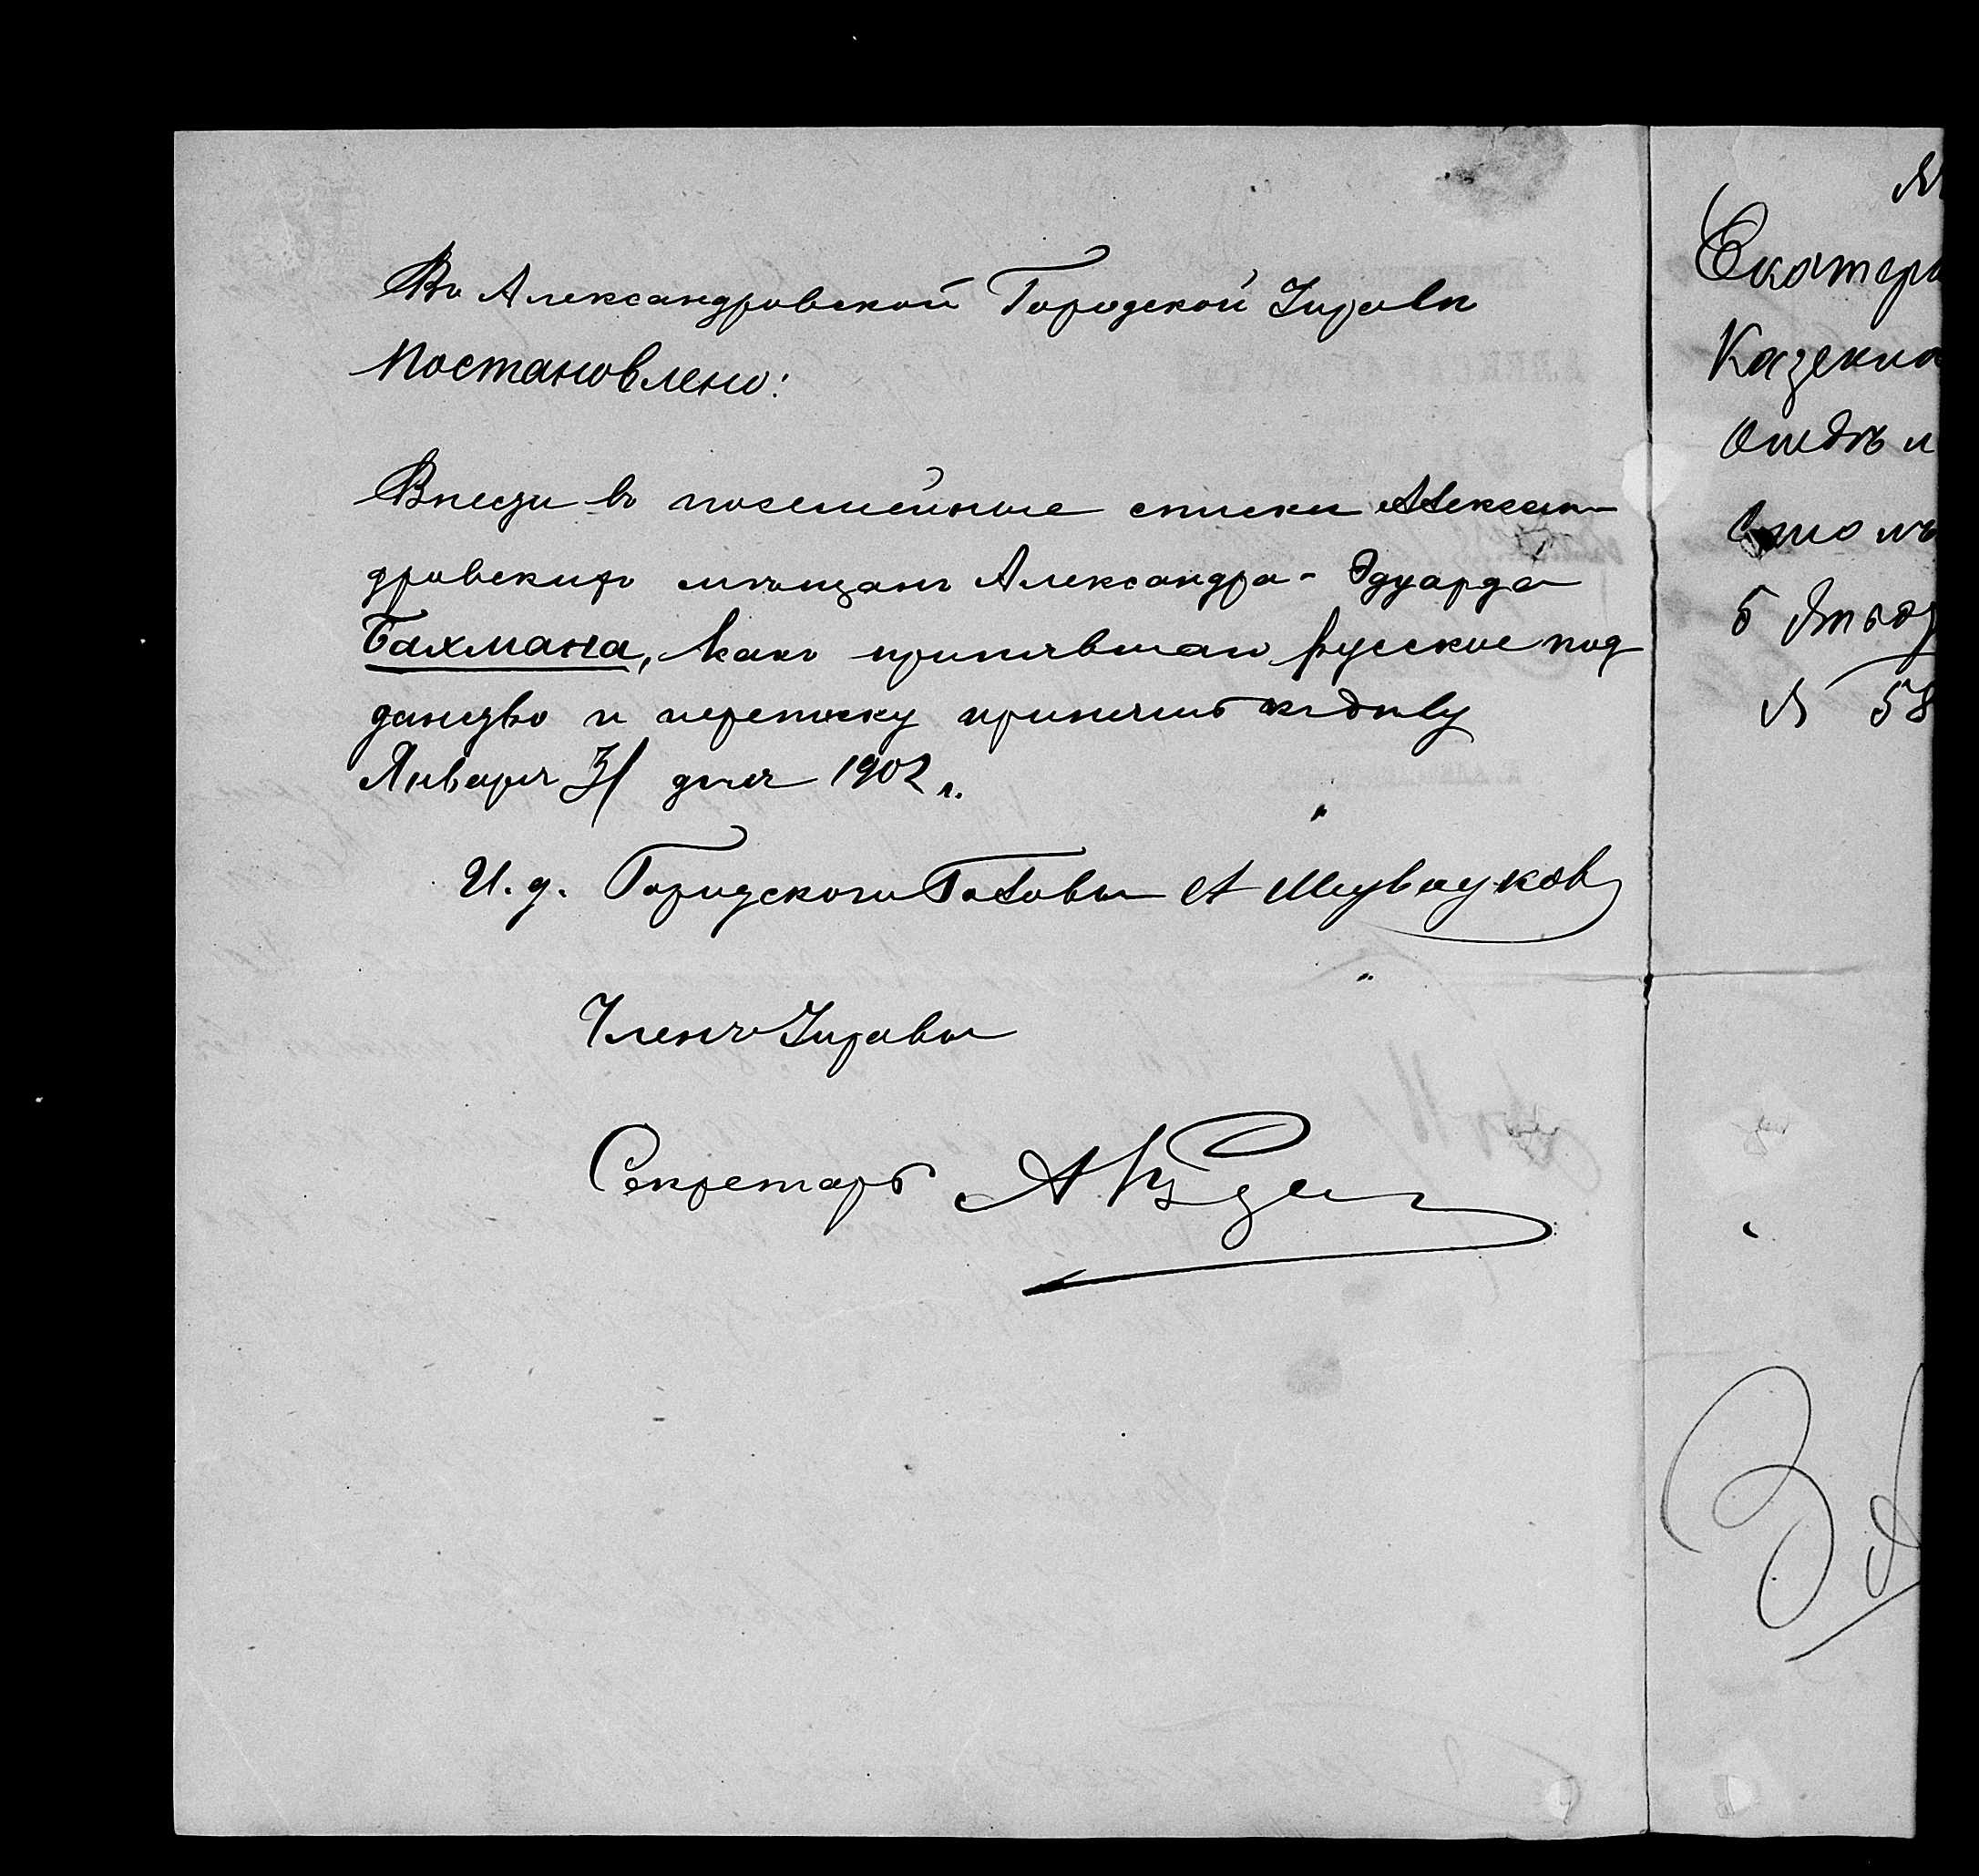 Въ Александровской Городской Управѣ
Постановлено:
Внести въ посемейные списки Алексан-
дровскихъ мѣщанъ Александра-Эдуарда
Бахмана, какъ принявшаго русское под
данство и переписку приобщить къ дѣлу
Января 31 дня 1902 г.
И. д. Городского Головы А
Членъ Управы
Секретарь А
Екатери
Казенна
Отдѣл
Столъ
№ 58